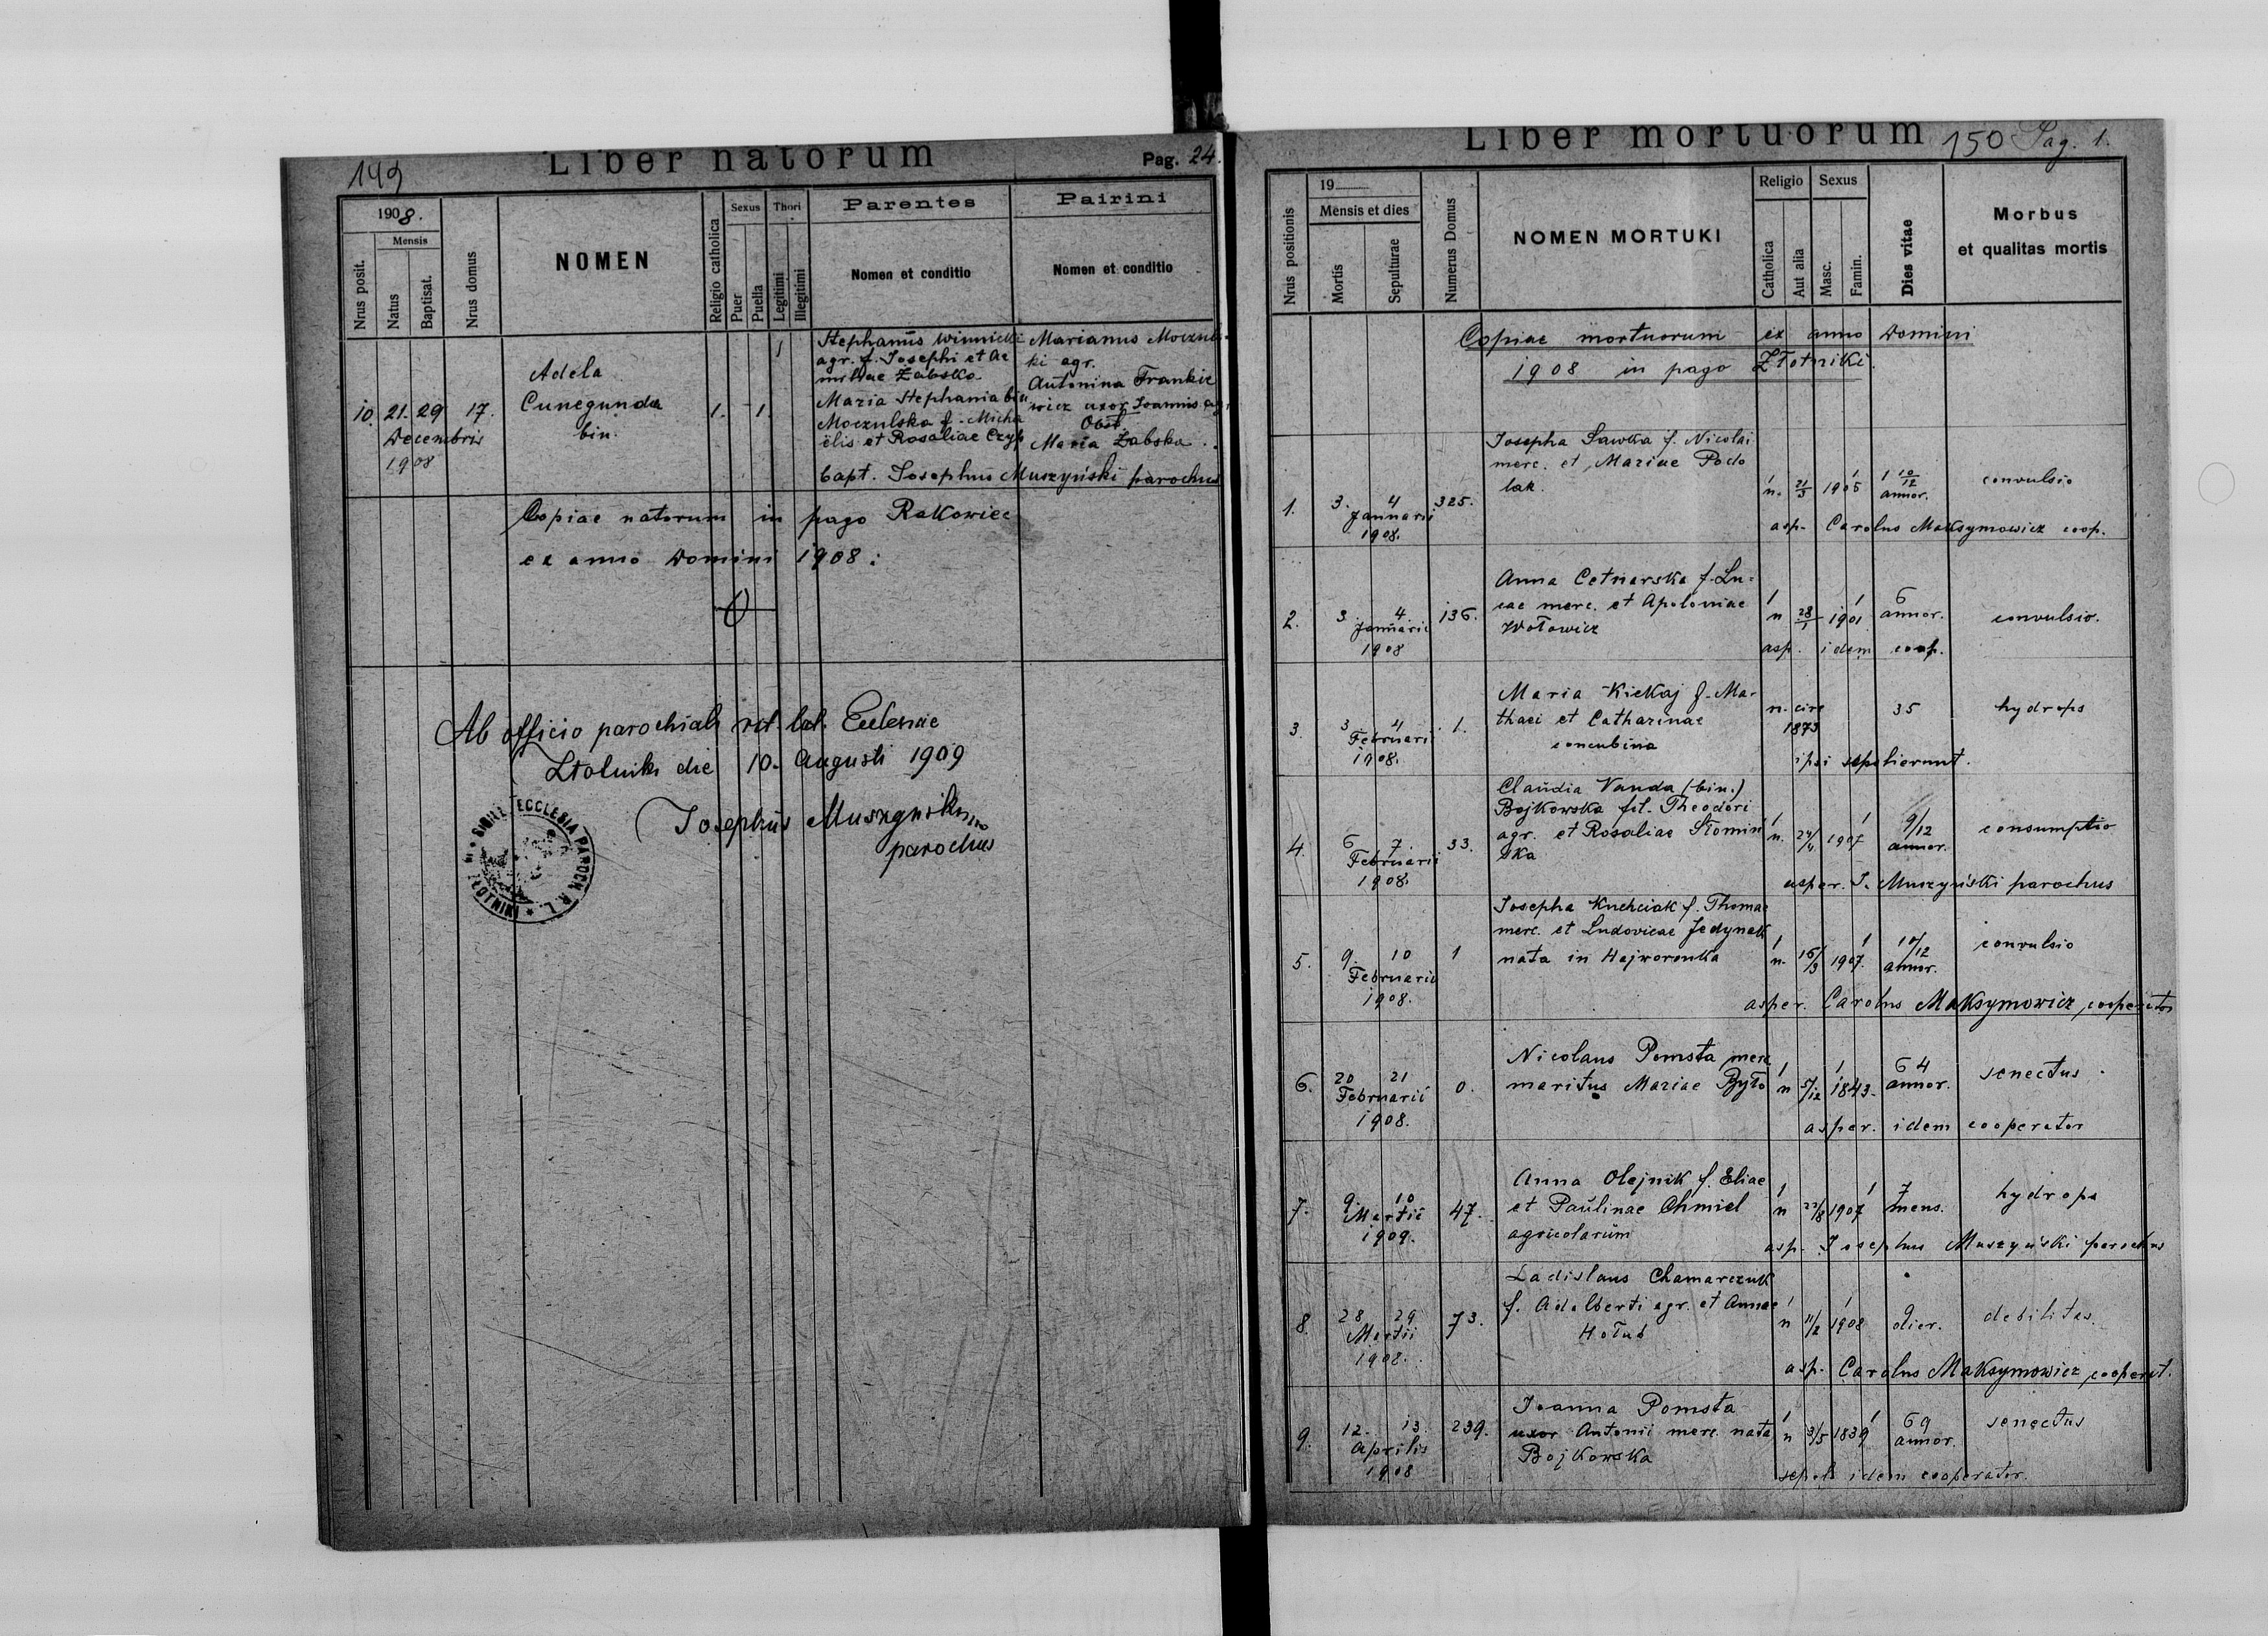 149
Liber natorum
Pag. 24.
1908.
Nrus posit.
Mensis
Natus
Baptisat.
Nrus domus
NOMEN
Religio catholica
Sexus
Puer
Puella
Thori
Legitimi
Illegitimi
Parentes
Nomen et conditio
Pairini
Nomen et conditio
10. 21. 29 17.
Decembris
1908
Adela
Cunegunda
bin.
1. 1. 1
Stephanus Winnicki
agr. f. Josephi et Ae
miliae Żabska.
Maria Stephania bin
Moczulska f. Micha
ëlis et Rosaliae Czyk
Marianus Moczuls-
ki agr.
Antonina Frankie
wicz uxor Joannis agr.
Obst.
Maria Żabska.
bapt. Josephus Muszyński parochus
Copiae natorum in pago Rakowiec
ex anno Domini 1908:
0
Ab officio parochiali rit. lat. Ecclesiae
Złotniki die 10. Augusti 1909
Josephus Muszyński
parochus
SIGILL ECCLESIA PAROCH. R. L. ZŁOTNIKI
Liber mortuorum 150 Pag. 1.
Nrus positionis
19
Mensis et dies
Mortis
Sepulturae
Numerus Domus
NOMEN MORTUKI
Religio
Catholica
Aut alia
Sexus
Masc.
Famin.
Dies vitae
Morbus
et qualitas mortis
Copiae mortuorum ex anno Domini
1908 in pago Złotniki.
Josepha Sawka f. Nicolai
merc. et Mariae Podo
lak.
1. 3. 4 325.
Januarii
1908.
1 1
n. 21/3 1905 1 10/12 annor. convulsio
asp. Carolus Maksymowicz coop.
Anna Cetnarska f. Lu-
cae merc. et Apoloniae
Wołowicz
2. 3. 4 136.
Januarii
1908
1 1
n 28/1 1901 6 annor. convulsio.
asp. idem coop.
Maria Kiekaj f. Ma-
thaei et Catharinae
concubina
3. 3 4 1.
Februarii
1908.
n. circ 1873 35 hydrops
ipsi sepelierunt.
Claudia Vanda (bin.)
Bojkowska fil. Theodori
agr. et Rosaliae Słomiń
ska
4. 6 7. 33.
Februarii
1908.
1 1
n. 24/4 1907 9/12 annor. consumptio
asper. J. Muszyński parochus
Josepha Kuchciak f. Thomae
merc. et Ludovicae Jedynak
nata in Hajworonka
5. 9. 10 1
Februarii
1908.
1 1
n. 16/3 1907. 10/12 annor. convulsio
asper. Carolus Maksymowicz, cooperator
Nicolaus Pomsta merc
maritus Mariae Było
6. 20 21 0.
Februarii
1908.
1 1
n 5/12 1843. 64 annor. senectus
asper. idem cooperator
Anna Olejnik f. Eliae
et Paulinae Chmiel
agricolarum
7. 9. 10 47.
Martii
1909.
1 1
n 22/8 1907 7 mens. hydrops
asp. Josephus Muszyński parochus
Ladislaus Chamarczuk
f. Adalberti agr. et Annae
Hołub
8. 28 29 73.
Martii
1908.
1 1
n 11/2 1908 9 dier. debilitas.
asp. Carolus Maksymowicz, cooperat.
Joanna Pomsta
uxor Antonii merc. nata
Bojkowska
9. 12. 13. 239.
Aprilis
1908
1 1
n 3/5 1839 69 annor. senectus
sepel. idem cooperator.